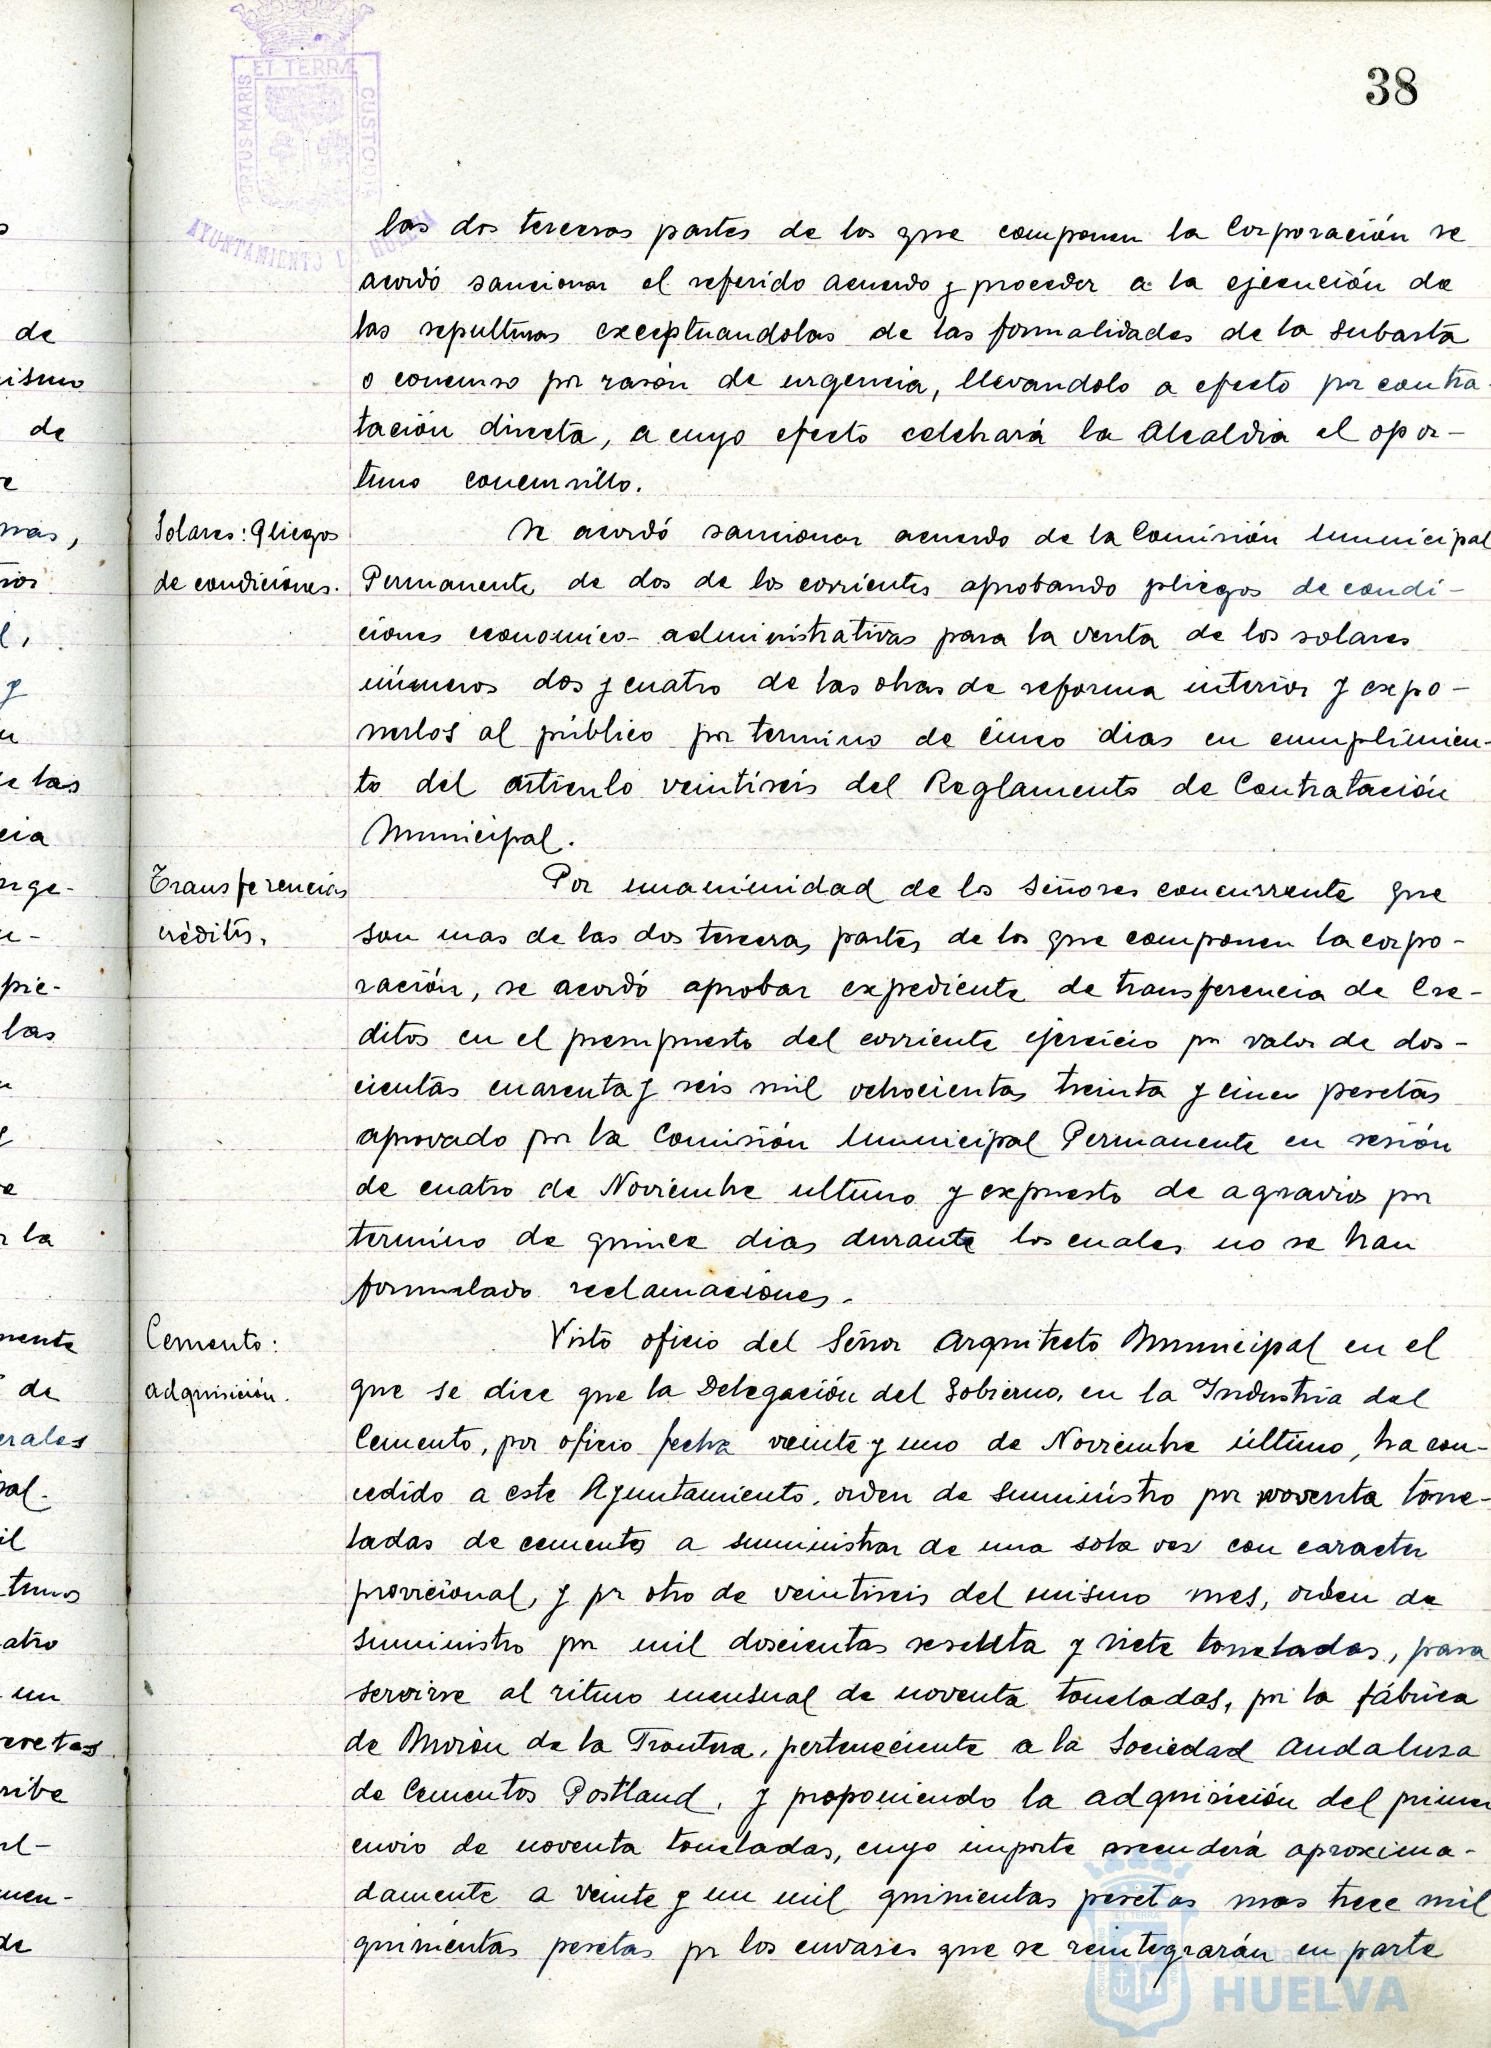 38
ET TERRÆ
PORTUS MARIS
CUSTODIA
AYUNTAMIENTO DE HUELVA
las dos terceras partes de los que componen la Corporación se
acordó sancionar el referido acuerdo y proceder a la ejecución de
las sepulturas exceptuandolas de las formalidades de la subasta
o concurso por rasón de urgencia, llevandolo a efecto por contra-
tación directa, a cuyo efecto celebrará la Alcaldia el opor-
tuno concursillo.
Solares: Pliegos
de condiciones.
Se acordó sancionar acuerdo de la Comisión Municipal
Permanente de dos de los corrientes aprobando pliegos de condi-
ciones economico-administrativas para la venta de los solares
números dos y cuatro de las obras de reforma interior y expo-
nerlos al público por termino de cinco dias en cumplimien-
to del articulo veintiseis del Reglamento de Contratación
Municipal.
Transferencias
créditos.
Por unanimidad de los Señores concurrente que
son mas de las dos terceras partes de los que componen la corpo-
ración, se acordó aprobar expediente de transferencia de Cre-
ditos en el presupuesto del corriente ejercicio por valor de dos-
cientas cuarenta y seis mil ochocientas treinta y cinco pesetas
aprovado por la Comisión Municipal Permanente en sesión
de cuatro de Noviembre ultimo y expuesto de agravios por
termino de quince dias durante los cuales no se han
formulado reclamaciones.
Cemento:
adquisición.
Visto oficio del Señor Arquitecto Municipal en el
que se dice que la Delegación del Gobierno, en la Industria del
Cemento, por oficio fecha veinte y uno de Noviembre último, ha con-
cedido a este Ayuntamiento, orden de suministro por noventa tone-
ladas de cemento a suministrar de una sola vez con caracter
provicional, y por otro de veintiseis del mismo mes, orden de
suministro por mil doscientas sesenta y siete toneladas, para
servirse al ritmo mensual de noventa toneladas, por la fábrica
de Morón de la Frontera, perteneciente a la Sociedad Andalusa
de Cementos Postland, y proponiendo la adquisición del primer
envio de noventa toneladas, cuyo importe ascenderá aproxima-
damente a veinte y un mil quinientas pesetas mas trece mil
quinientas pesetas por los envases que se reintegrarán en parte
Ayuntamiento de
HUELVA